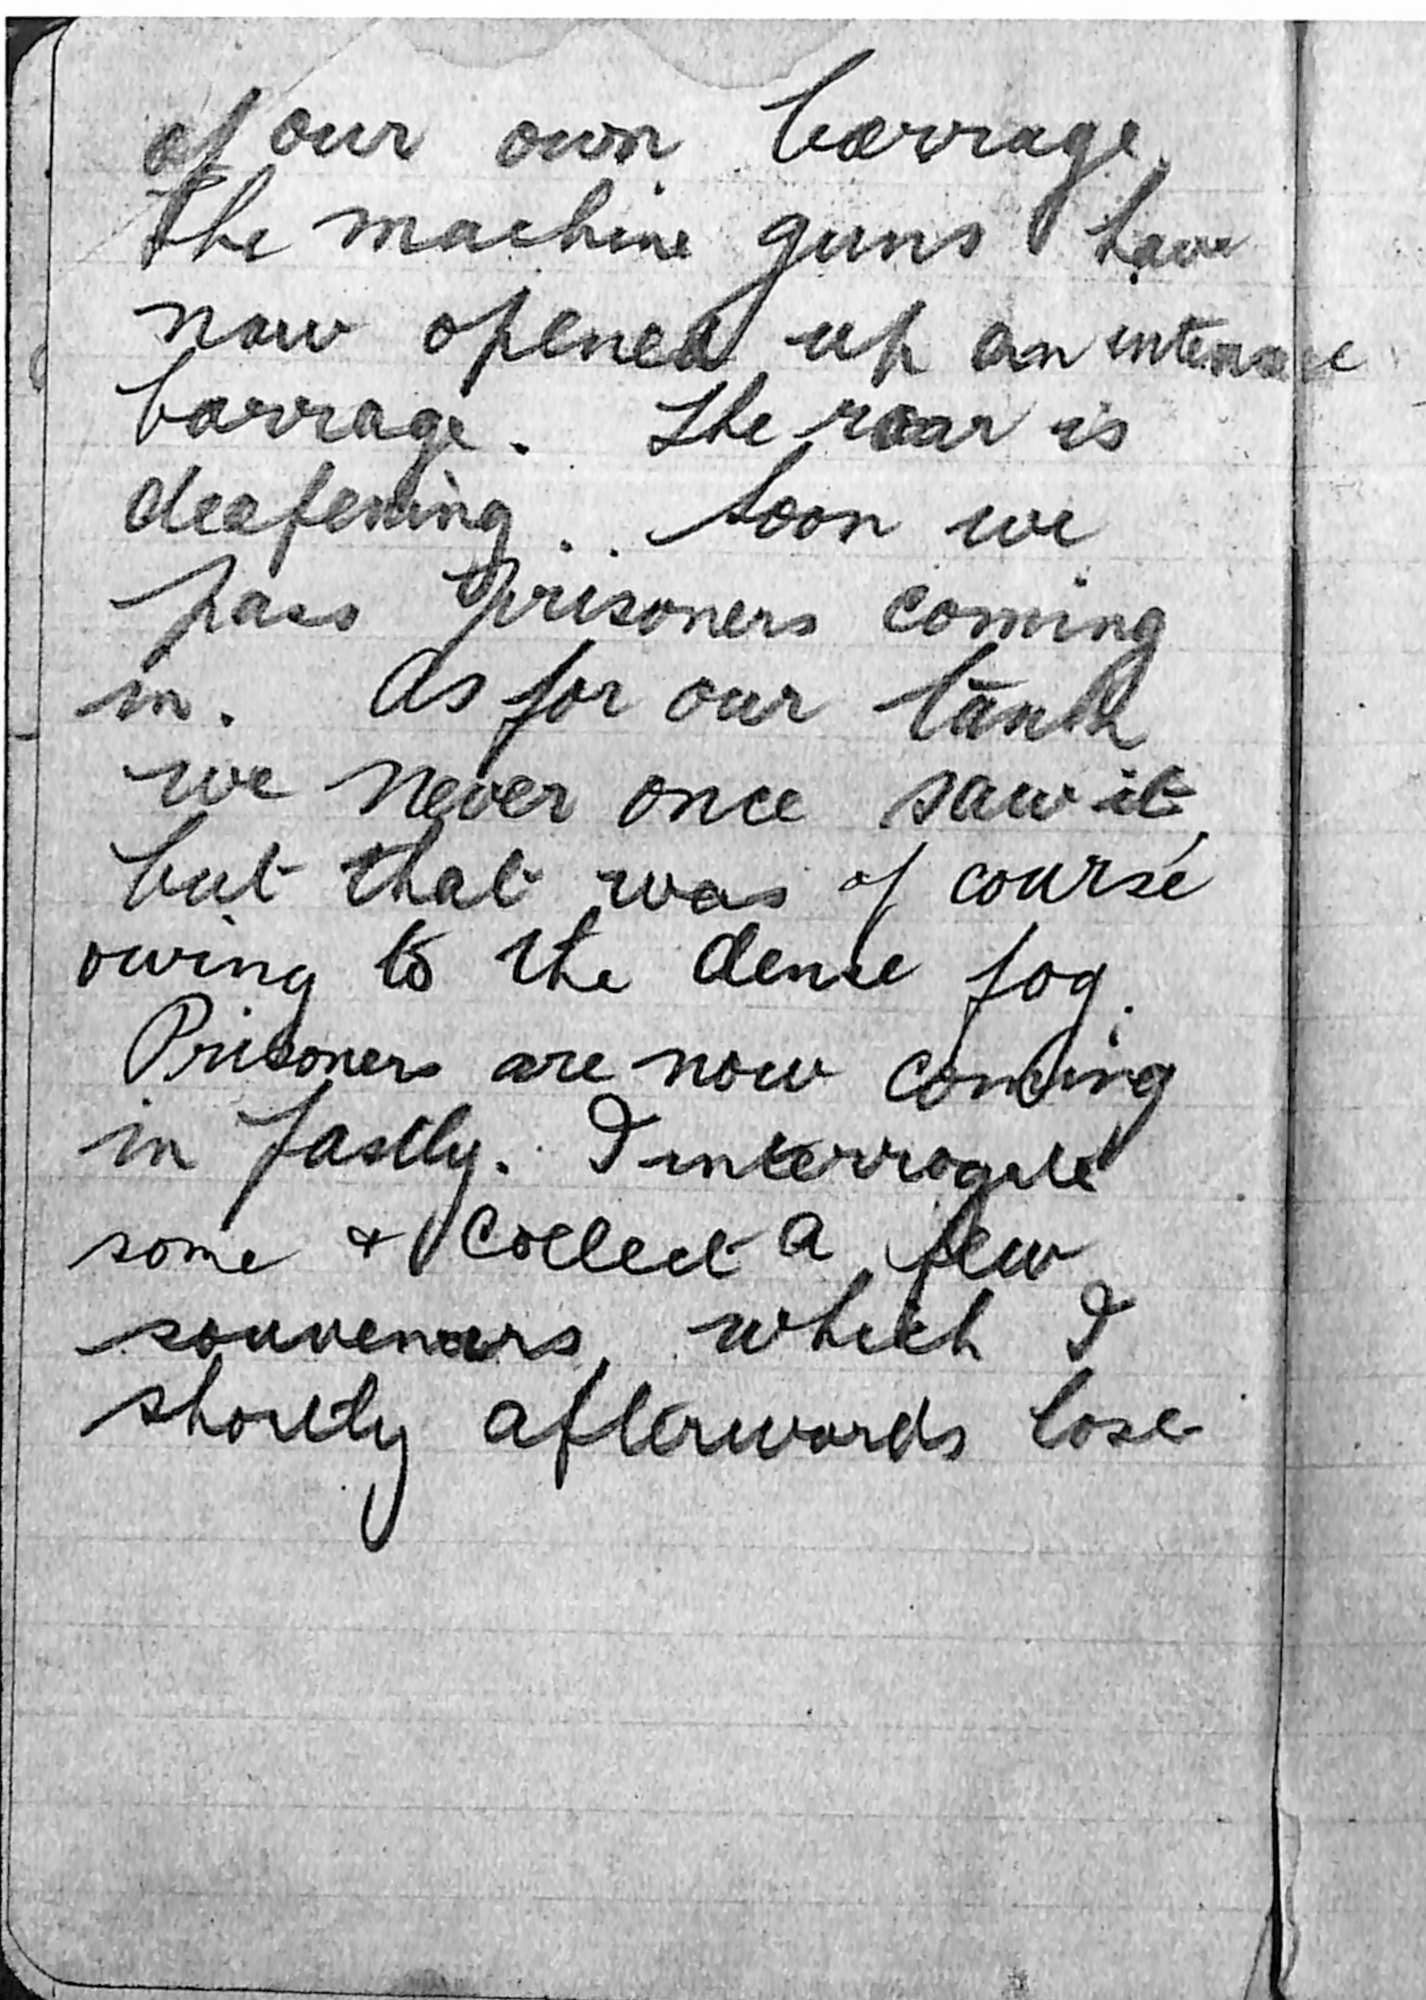 of our own barrage.
The machine guns have
now opened up an intense
barrage. The roar is
deafening. . Soon we
pass prisoners coming
in. As for our tank
we never once saw it,
but that was of course
owing to the dense fog.
Prisoners are now coming
in fastly. I interrogate
some & collect a few
souvenirs, which I
shortly afterwards lose